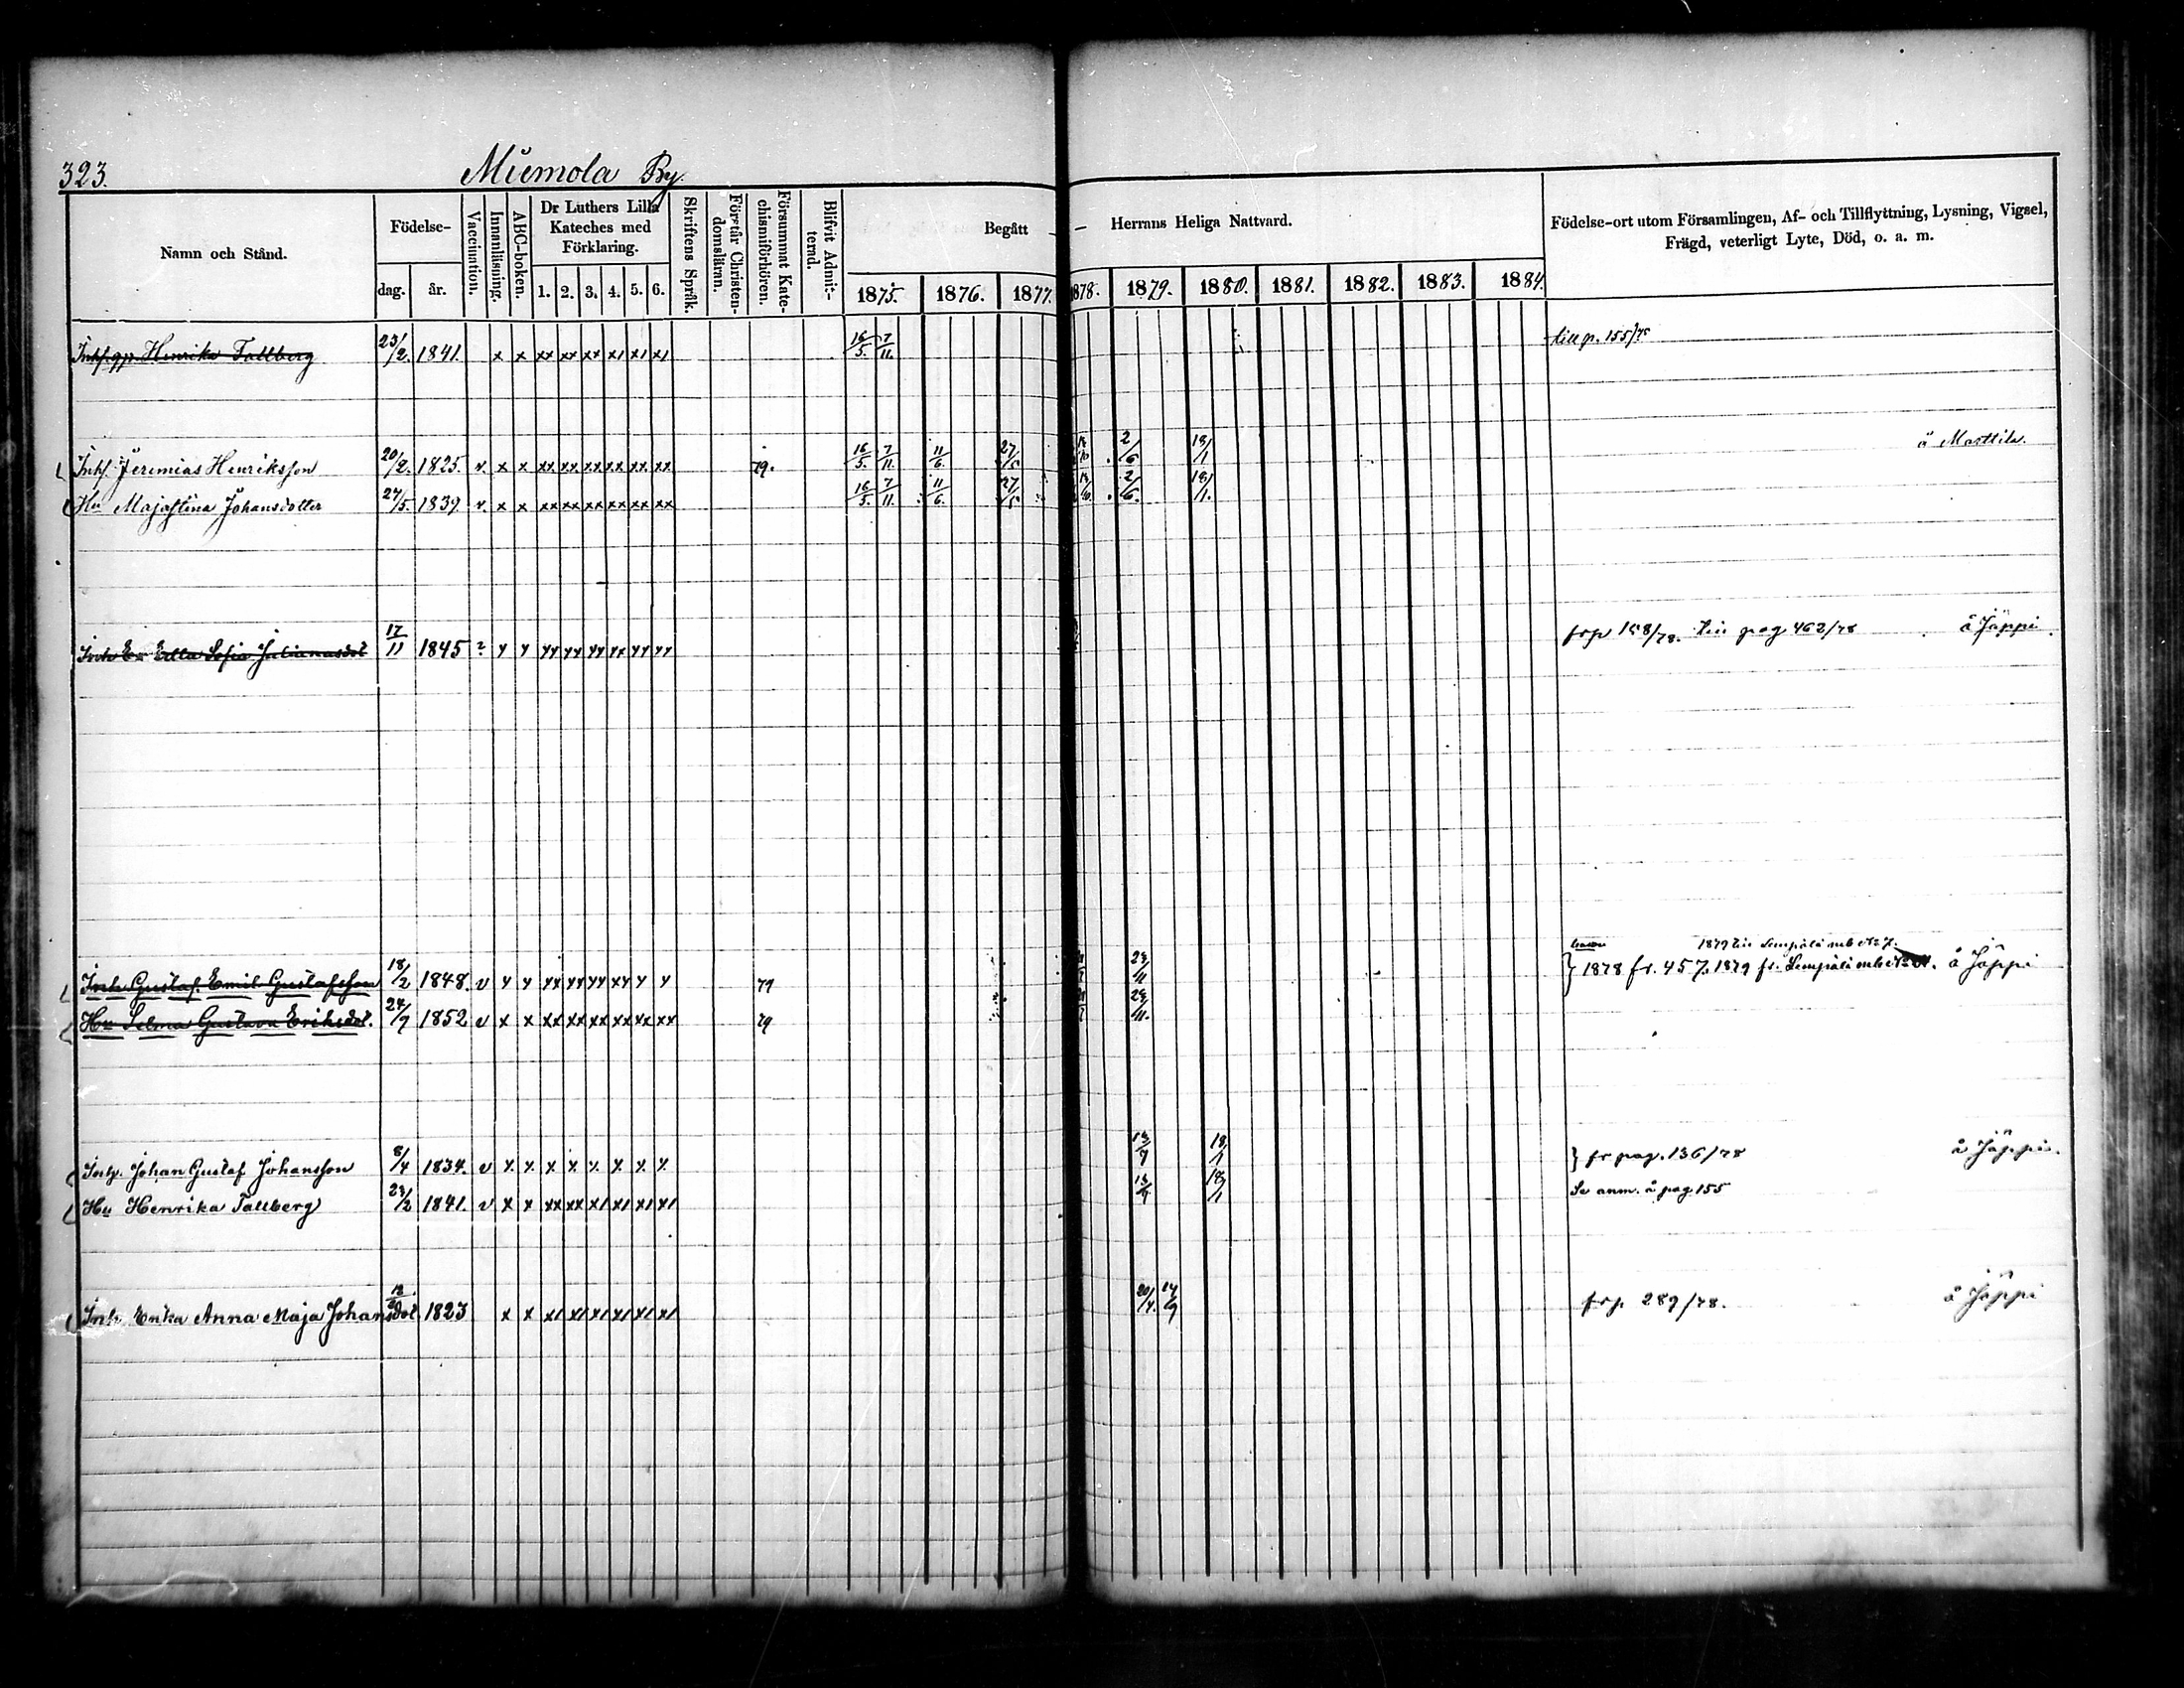 323.
Miemola By.
Namn och Stånd.
Födelse-
dag.
år.
Vaccination.
Innanläsning.
ABC-boken.
Dr Luthers Lilla Kateches med Förklaring.
1. 2. 3. 4. 5. 6.
Skriftens Språk.
Förstår Christendomsläran.
Försummat Katechismiförhören.
Blifvit Admitterad.
Begått — — Herrans Heliga Nattvard.
1875. 1876. 1877. 1878. 1879. 1880. 1881. 1882. 1883. 1884.
Födelse-ort utom Församlingen, Af- och Tillflyttning, Lysning, Vigsel,
Frägd, veterligt Lyte, Död, o. a. m.
Henrika Tallberg 23/2. 1841. x x xx xx xx x1 x1 x1 16/5. 7/11. till p. 155/75
Inh. Jeremias Henriksson 20/2. 1825. v. x x xx xx xx xx xx xx 79. 16/5. 7/11. 11/6. 27/5 2/6 18/1 å Marttila.
Hu Majastina Johansdotter 27/5. 1839. v. x x xx xx xx xx xx xx 16/5. 7/11. 11/6. 27/5 2/6. 18/1.
Sofia Julianasdot 17/11 1845 ? y y yy yy yy yy yy yy frp 158/78. till pag 462/78 å Jäppi.
1879 till Lempälä mb No 7.
Inh. Gustaf Emil Gustafsson 18/2 1848. v y y yx yy yy xy y y 79 23/11 } 1878 fr. 457. 1879 fr. Lempälä mb å Jäppi
Hu Selma Gustava Eriksdot. 24/7 1852 v x x xx xx xx xx xx xx 79 23/11.
Inh. Johan Gustaf Johansson 8/4 1834. v x x x x x x x x 18/1 } fr pag. 136/78 å Jäppi.
Hu Henrika Tallberg 23/2 1841. v x x xx xx x1 x1 x1 x1 18/1 Se anm. å pag 155
Inh. Enka Anna Maja Johansdot. 1823 x x x1 x1 x1 x1 x1 x1 20/4. 14/9 frp 289/78. å Jäppi